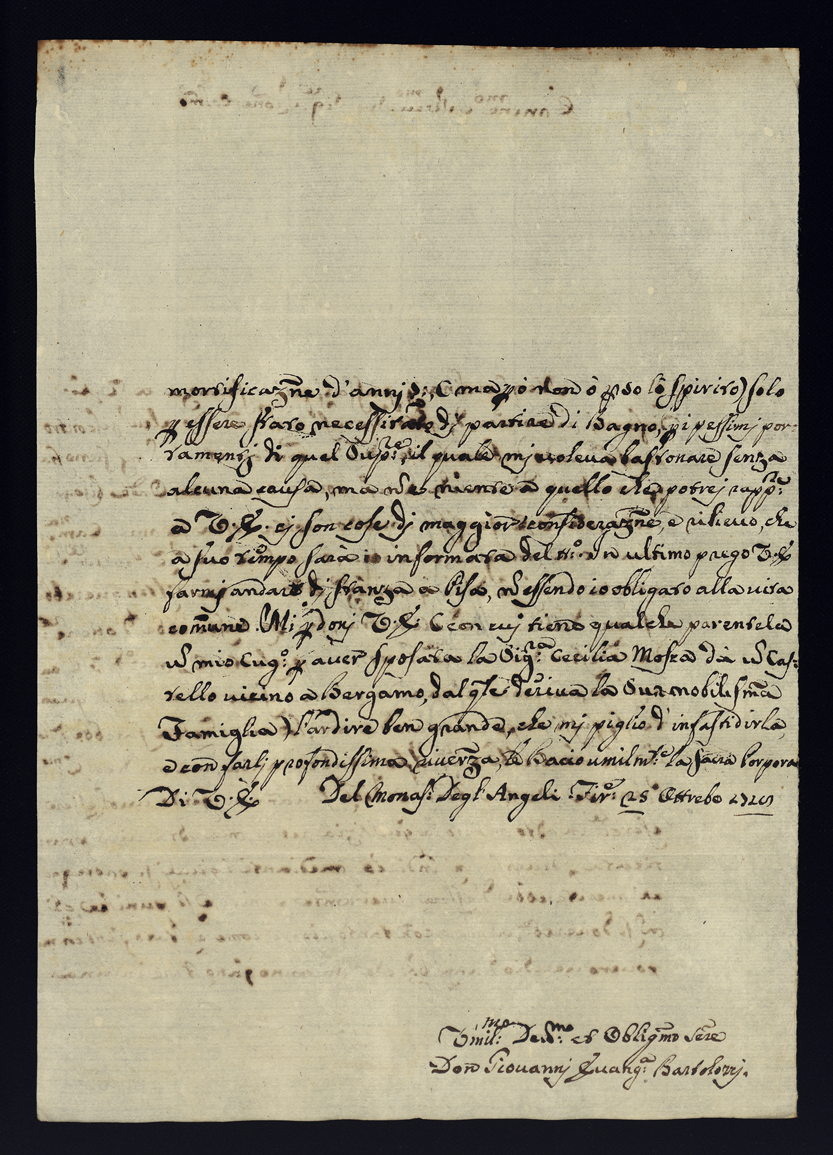 mortificaz̃ne d'annj 8: (ma p̱ò non ò p̱so lo spirito) solo
p̱ essere stato necessitato dj partire di Bagno, p̱ i pessimj por-
tamentj di quel Sup.re, il quale mi voleva bastonare senza
alcuna causa, ma è niente a quello che potrej rapp.re
a V. E. ej son cose dj maggior consideraz̃ne, e rilievo, che
a suo tempo sarà informata del tt.o In ultimo prego V. E.
farmj andare dj stanza a Pisa, essendo io obligato alla vita
com̃une. Mi p̱donj V. E. (con cuj tiene qualche parentela
un mio Cug.o p̱ aver sposata la Sig.ra Cecilia Mosca da un Cas-
tello vicino a Bergamo, dal q̃le deriva la Sua nobiliss̃ma
Famiglia) l'ardire ben grande, che mj piglio d'infastidirla,
e con farlj profondissima riverenza, le bacio umilm.te la sacra Porpora
Di V. E. Del Monas.o Degl' Angeli Fir.e 25 Ottrebe
Umil.mo Dev.mo et Oblig̃mo Ser̃e
Don Giovannj Evang.a Bartolozzj.